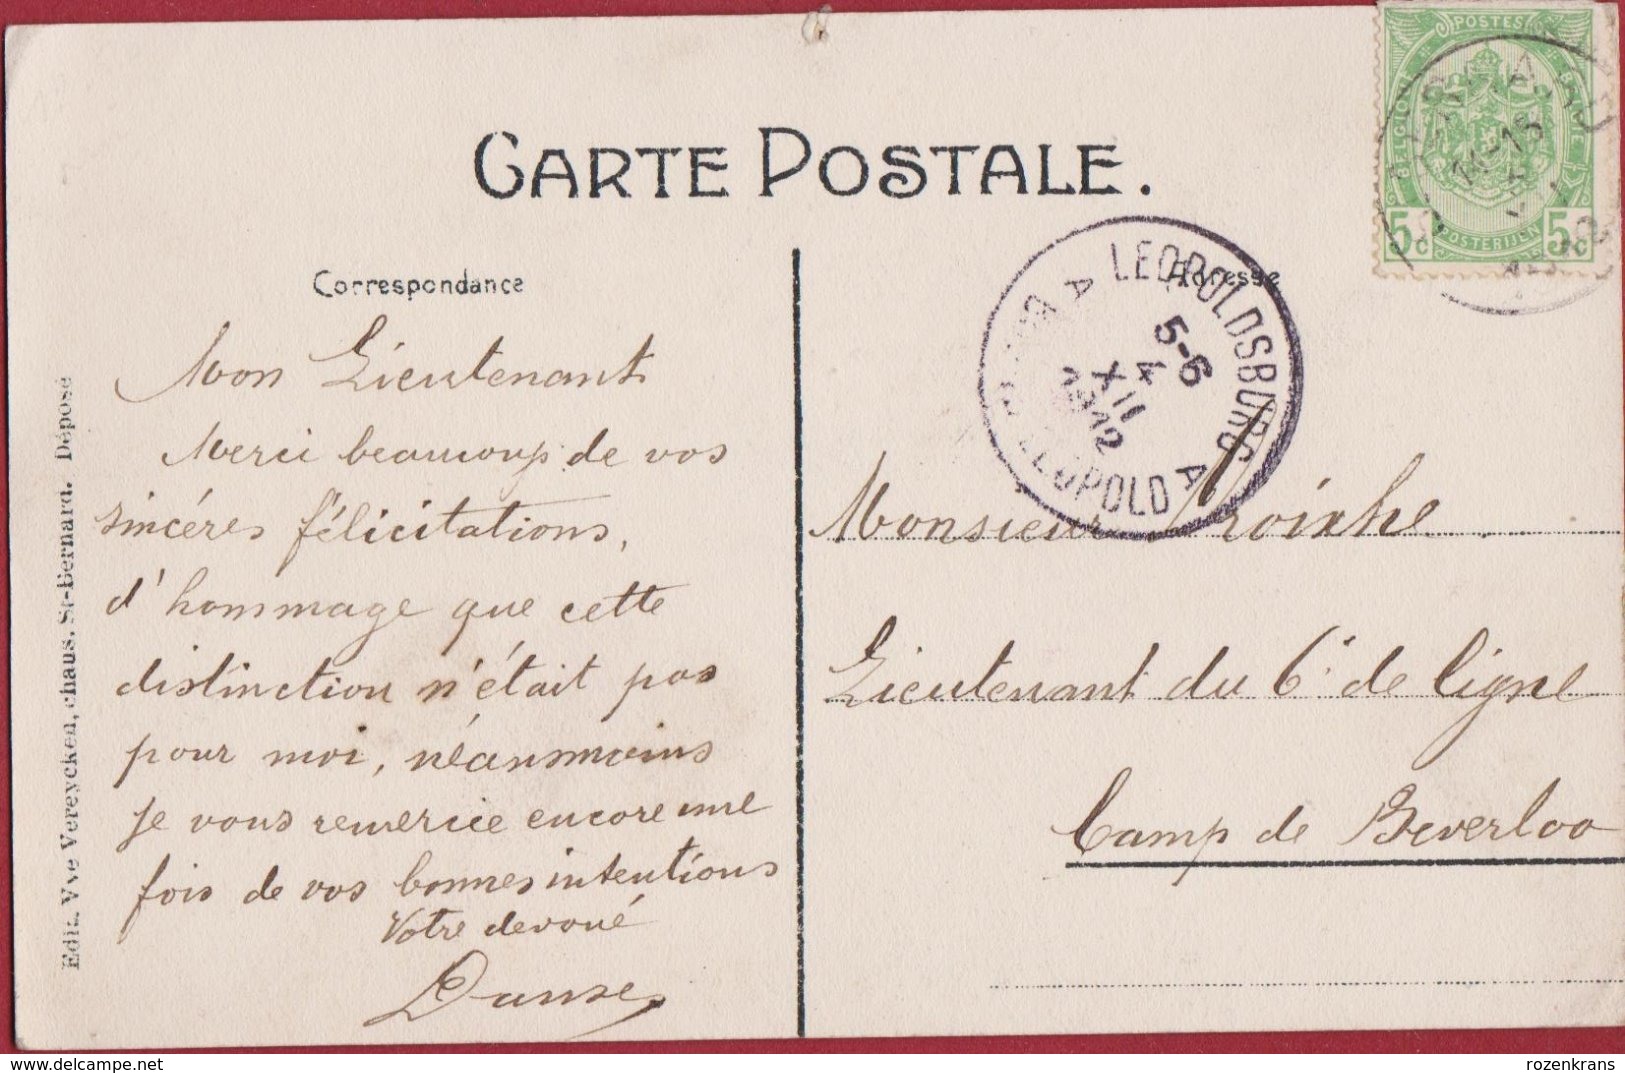 CARTE POSTALE.
Correspondance
Adresse
Mon Lieutenant
Merci beaucoup de vos
sincéres félicitations,
d'hommage que cette
distinction n'était pas
pour moi, néansmoins
je vous remercie encore une
fois de vos bonnes intentions
Votre devoué
Monsieur
Lieutenant du 6e de ligne
Camp de Beverloo
Edit. Vve Vereycken, chaus. St-Bernard. Déposé
LEOPOLDSBURG
A
5-6
4
XII
1912
LEOPOLD A
POSTES
BELGIQUE
BELGIE
5c
5c
POSTERIJEN
rozenkrans